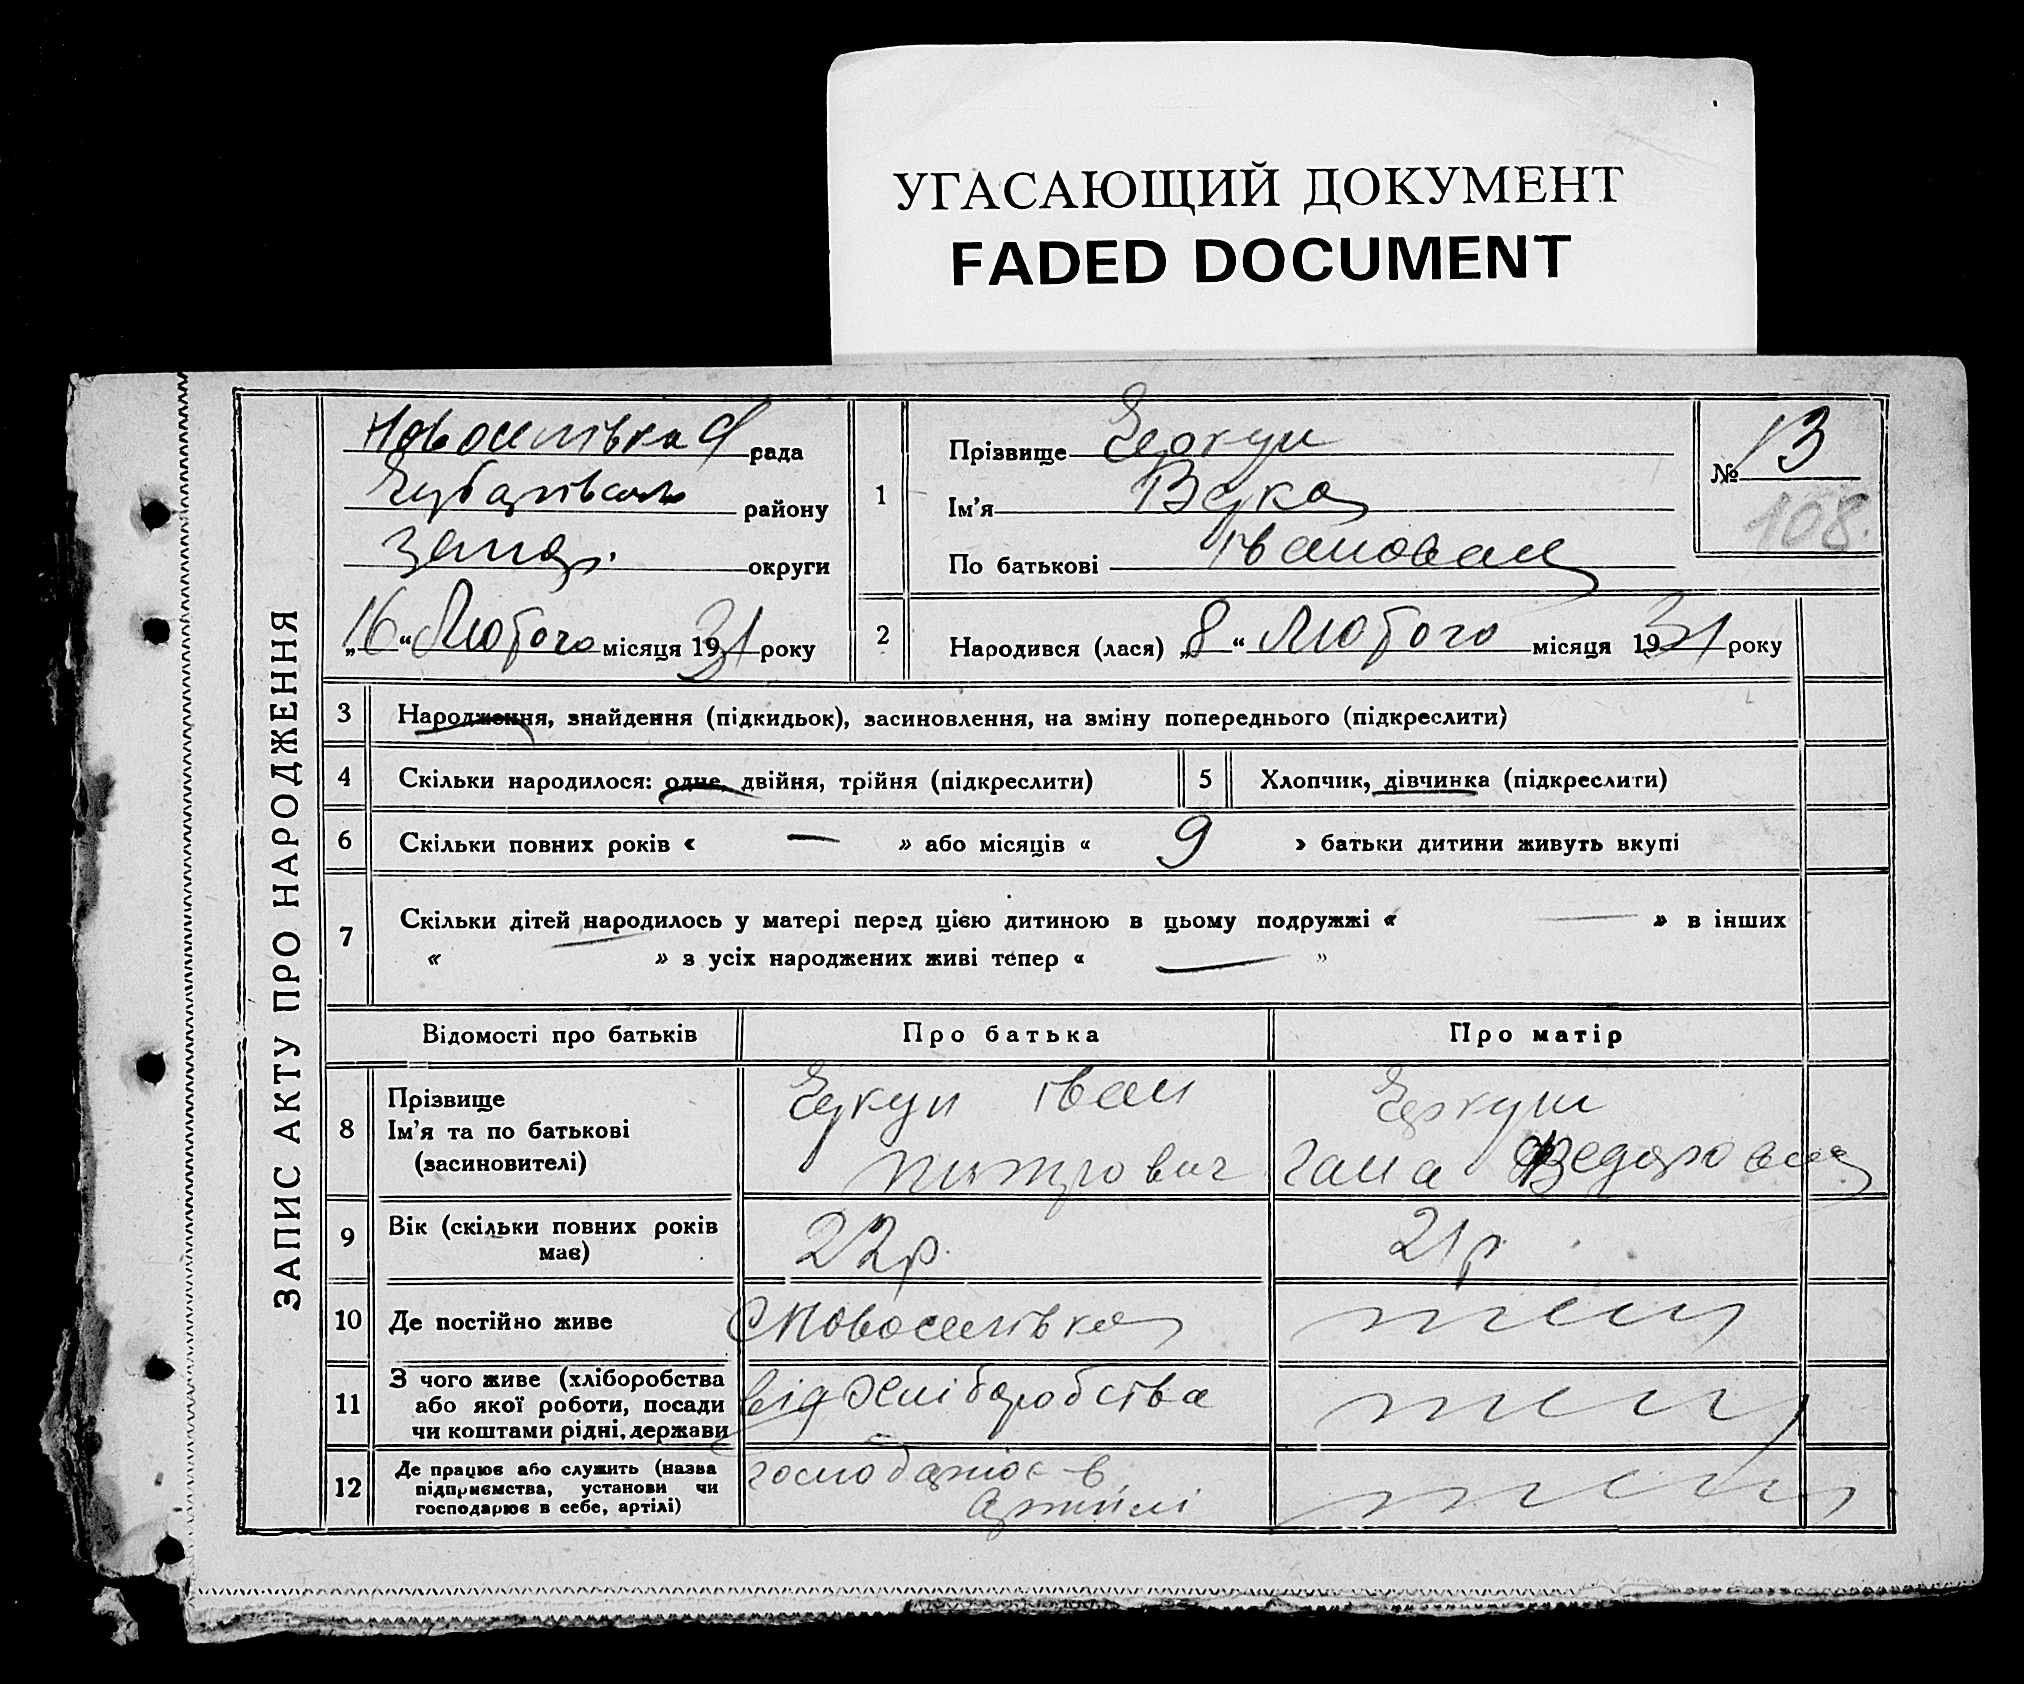 УГАСАЮЩИЙ ДОКУМЕНТ
FADED DOCUMENT
ЗАПИС АКТУ ПРО НАРОДЖЕННЯ
Новоселівка рада
району
Запор. округи
„16“ Лютого місяця 1931 року
1
Прізвище
Ім'я
По батькові Івановна
№ 13
108.
2
Народився (лася) „8“ Лютого місяця 1931 року
3 Народження, знайдення (підкидьок), засиновлення, на зміну попереднього (підкреслити)
4 Скільки народилося: одне, двійня, трійня (підкреслити)
5 Хлопчик, дівчинка (підкреслити)
6 Скільки повних років « — » або місяців « 9 » батьки дитини живуть вкупі
7 Скільки дітей народилось у матері перед цією дитиною в цьому подружжі « — » в інших
« — » з усіх народжених живі тепер « — »
Відомості про батьків Про батька Про матір
8 Прізвище
Ім'я та по батькові
(засновителі)
Іван
Петрович
Гана Федоровна
9 Вік (скільки повних років
має)
22р.
21р.
10 Де постійно живе
с Новоселівка
теж
11 З чого живе (хліборобства
або якої роботи, посади
чи коштами рідні, держави
від хліборобства
теж
12 Де працює або служить (назва
підприємства, установи чи
господарює в себе, артілі)
господарює в
артілі
теж